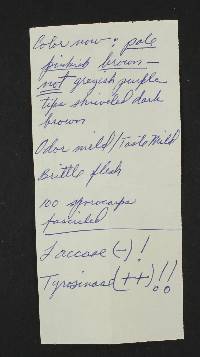 Color now: pale
pinkish brown—
not greyish purple
Tips shriveled dark
brown
Odor mild/Taste Mild
Brittle flesh
100 sporocarps
fascicled
Laccase (-)!
Tyrosinase (++)!!